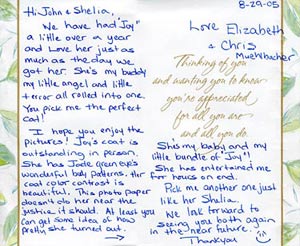 8-29-05
Hi John & Shelia,
We have had "Joy"
a little over a year
and Love her just as
much as the day we
got her. She's my buddy
my little angel and little
terror all rolled into one.
You pick me the perfect
cat!
I hope you enjoy the
pictures! Joy's coat is
outstanding in person.
She has Jade green eye's
wonderful body patterns. Her
coat color contrast is
beautiful. This photo paper
doesn't do her near the
justice it should. At least you
can get some idea of how
pretty she turned out.
Love Elizabeth
& Chris
Muehlbacher
Thinking of you
and wanting you to know
you're appreciated
for all you are
and all you do.
She's my baby and my
little bundle of "Joy"!
She has entertained me
for hours on end.
Pick me another one just
like her Shelia.
We look forward to
seeing you both again
in the near future.
Thankyou